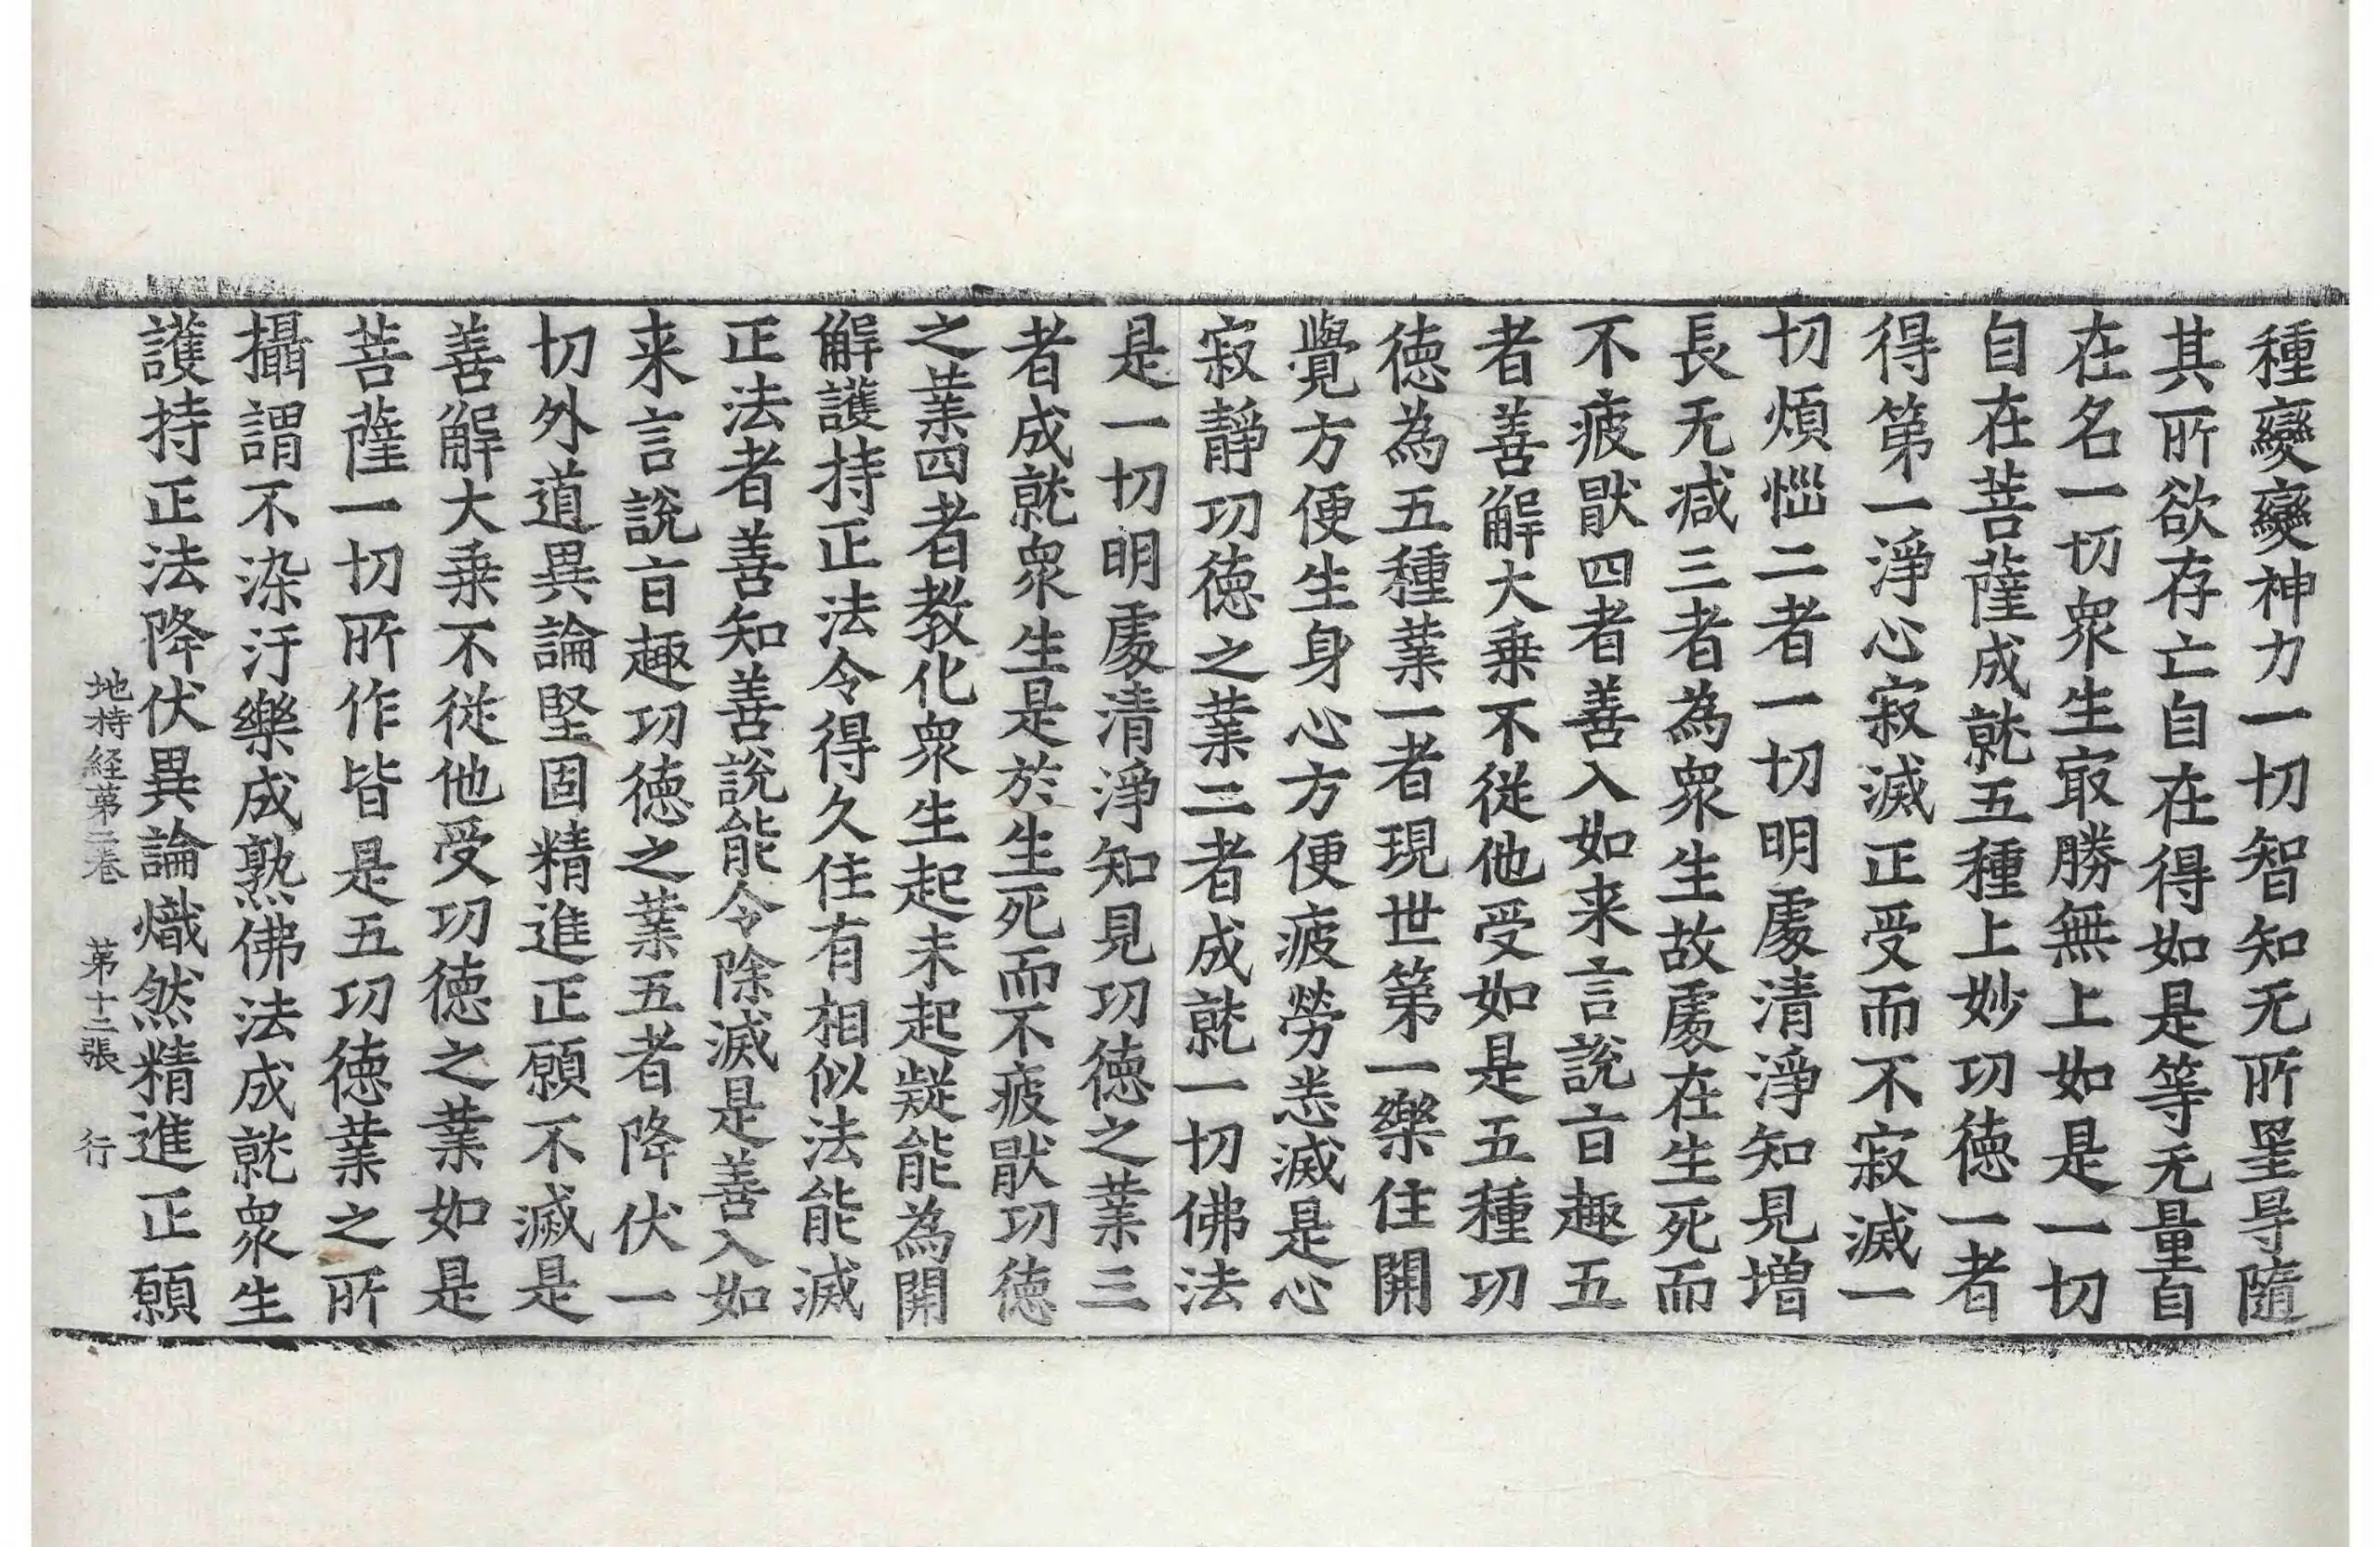 種變變神力一切智知无所罣㝵隨
其所欲存亡自在得如是等无量自
在名一切衆生㝡勝無上如是一切
自在菩薩成就五種上妙功徳一者
得第一淨心寂滅正受而不寂滅一
切煩惱二者一切明處清淨知見增
長无减三者為衆生故處在生死而
不疲猒四者善入如来言說㫖趣五
者善解大乗不從他受如是五種功
徳為五種業一者現世第一樂住開
覺方便生身心方便疲勞悉滅是心
寂靜功徳之業二者成就一切佛法
是一切明處清淨知見功徳之業三
者成就衆生是於生死而不疲猒功徳
之業四者教化衆生起未起疑能為開
解護持正法令得久住有相似法能滅
正法者善知善說能令除滅是善入如
来言說㫖趣功徳之業五者降伏一
切外道異論堅固精進正願不滅是
善解大乗不從他受功徳之業如是
菩薩一切所作皆是五功徳業之所
攝謂不染汙樂成熟佛法成就衆生
護持正法降伏異論熾然精進正願
地持経苐二巻 苐十二張 行